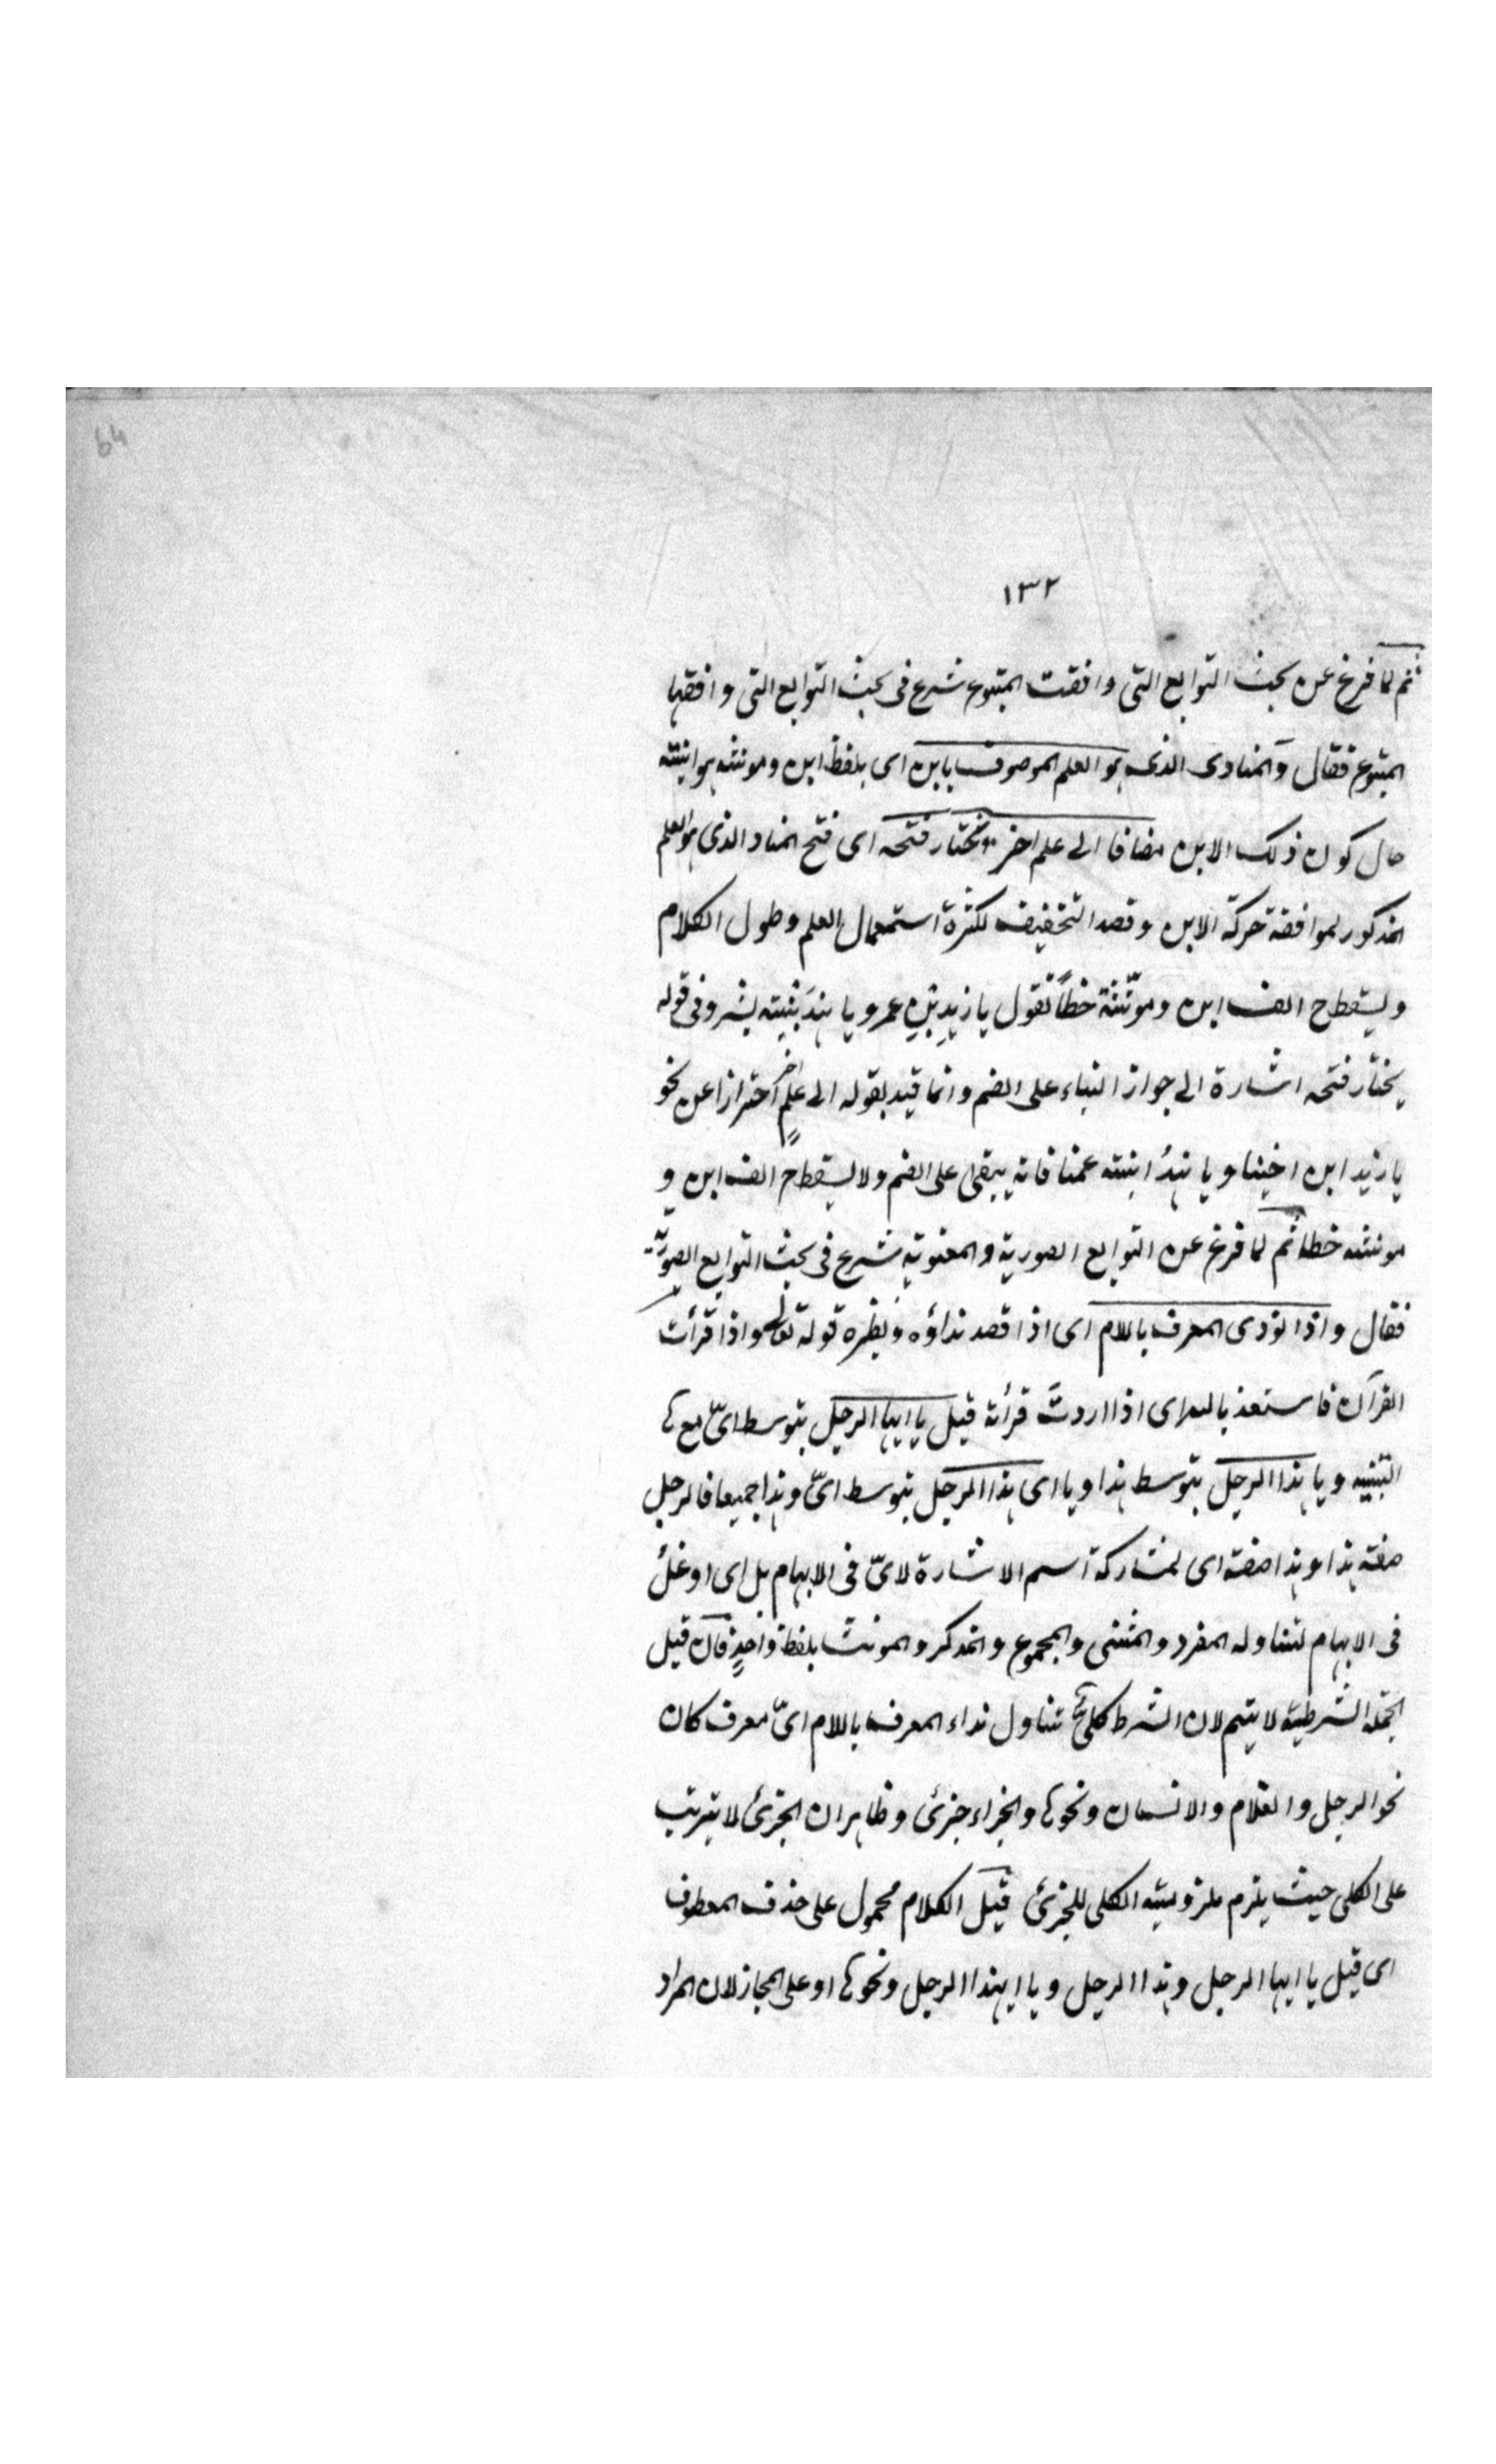 64
١٣٢
ثم لما فرغ عن بحث التوابع التى وافقت المتبوع شرع فى بحث التوابع التى وافقها
المتبوع فقال والمنادى الذى هو العلم الموصوف بابن اى بلفظ ابن ومونثه هو ابنته
حال كون ذلك الابن مضافا الى علم اخر يختار فتحه اى فتح المناد الذى هو العلم
المذكور لموافقة حركة الابن وقصد التخفيف لكثرة استعمال العلم وطول الكلام
ويسقط ح الف ابن وموَنّثة خطاً تقول يا زيدَ بْنِ عمرو يا هندَ بنته بشر وفى قوله
يختار فتحه اشارة الى جواز البناء على الضم وانما قيد بقوله الى علمٍ اخر احترازا عن نحو
يا زيد ابن اخينا ويا هندُ ابنته عمنا فانه يبقى على الضم ولا يسقط ح الف ابن و
مونثه خطا ثم لما فرغ عن التوابع الصورية والمعنوية شرع فى بحث التوابع الصوريّة
فقال واذا نودى المعرف باللام اى اذا قصد نداؤه ونظيره قوله تعالى واذا قرأت
القرآن فاستعذ بالله اى اذا اردتَ قرأته قيل يا ايها الرجل بتوسط اىّ مع ها
التنبيه ويا هذا الرجل بتوسط هذا ويا اى هذا الرجل بتوسط اىّ وهذا جميعا فالرجل
صفته هذا وهذا صفته اى لمشاركة اسم الاشارة لاىّ فى الابهام بل اى اوغل
فى الابهام لتناوله المفرد والمثنى والمجموع والمذكر والمونث بلفظ واحدٍ فان قيل
الجملة الشرطية لا يتم لان الشرط كلىٌ تناول نداء المعرف باللام اىّ معرف كان
نحو الرجل والغلام والانسان ونحوها والجزاء جزئى وظاهر ان الجزئى لا يترتب
على الكلى حيث يلزم ملزوميته الكلى للجزئى قيل الكلام محمول على حذف المعطوف
اى قيل يا ايها الرجل وهذا الرجل ويا ايهذا الرجل ونحوها او على المجاز لان المراد